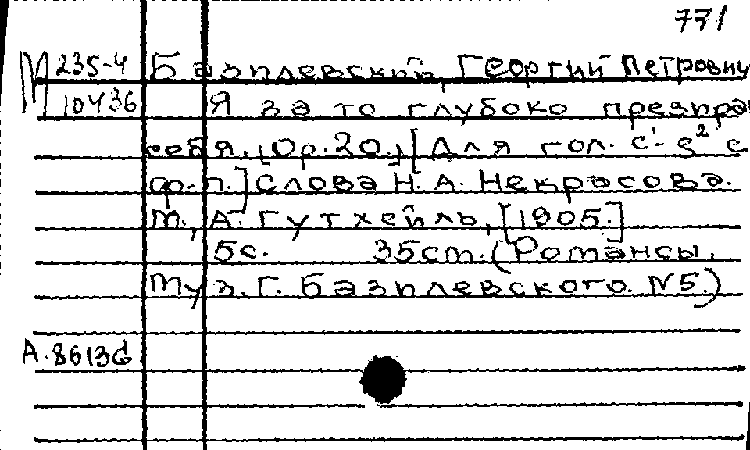 771
М 235-4 Базилевский, Георгий Петрович
10436 Я за то глубоко презира
себя. [Ор.20.] [Для гол. c¹-g² с
ф.-п.] Слова Н.А. Некрасова.
М., А. Гутхейль, [1905.]
5с. 35cm. (Романсы.
Муз. Г. Базилевского. №5.)
А.8613d